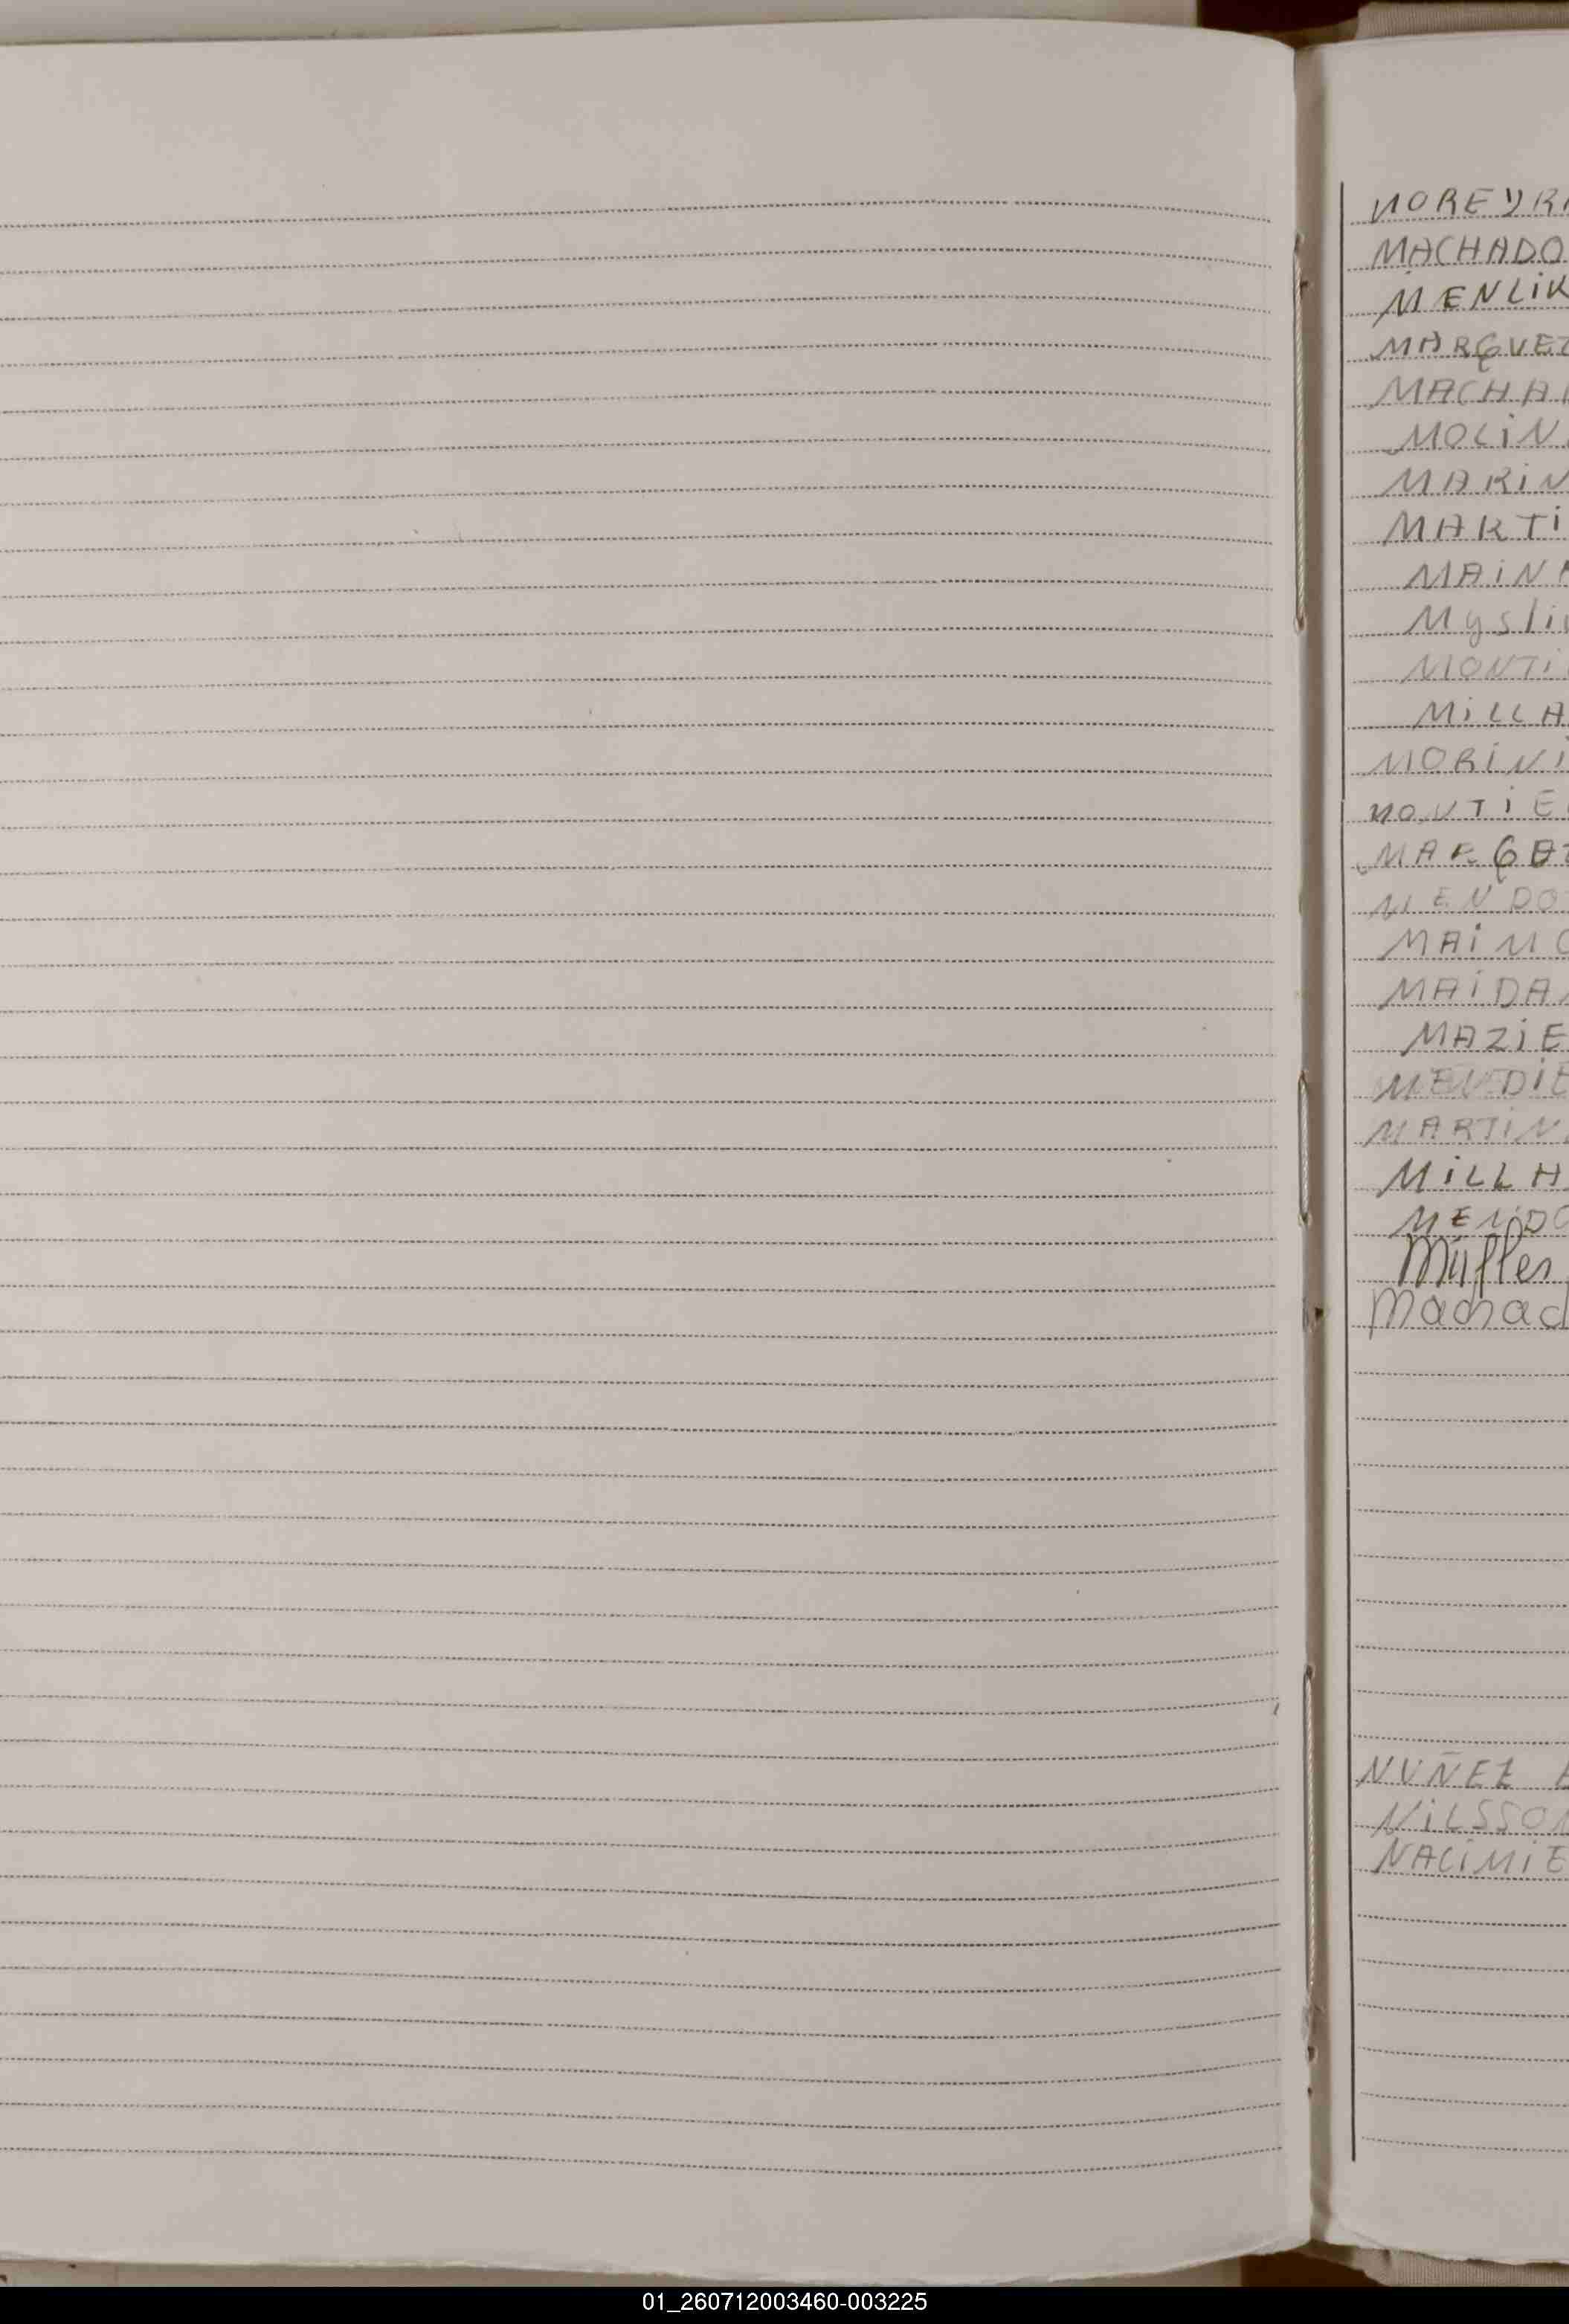 MOREYR
MACHADO
MENLIK
MARQUEZ
MACHA
MOLIN
MARIN
MARTI
MAIN
Mysli
MONTI
MILLA
MORINI
MONTIE
MARGAT
MENDO
MAIMO
MAIDA
MAZIE
MENDIE
MARTIN
MILLA
MENDO
Müller
Machad
NUÑEZ
NILSSON
NACIMIE
01_260712003460-003225